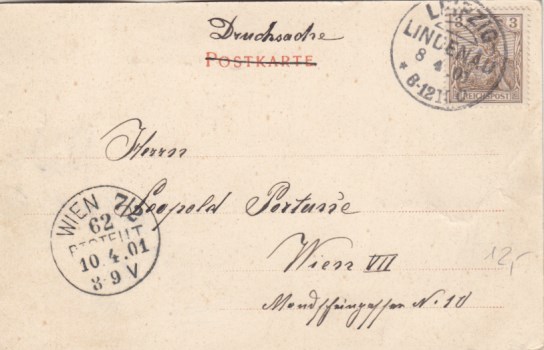 Drucksache
POSTKARTE
3 3
REICHSPOST
LEIPZIG
LINDENAU
8 4 01
8-12
Herrn
Leopold Portune
Wien VII
Mondscheingasse N. 10
WIEN 7/2
62
BESTELLT
10.4.01
8-9 V
12,-